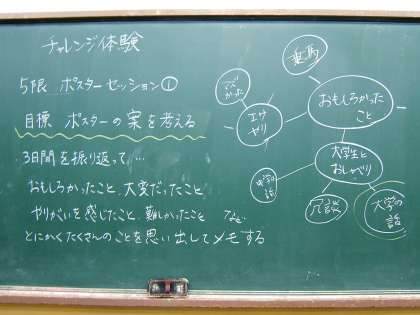 チャレンジ体験
5限 ポスターセッション①
目標 ポスターの案を考える
3日間を振り返って…
おもしろかったこと、大変だったこと
やりがいを感じたこと、難しかったこと など
とにかくたくさんのことを思い出してメモする
乗馬
おもしろかったこと
エサやり
大学生とおしゃべり
冗談
大学の話